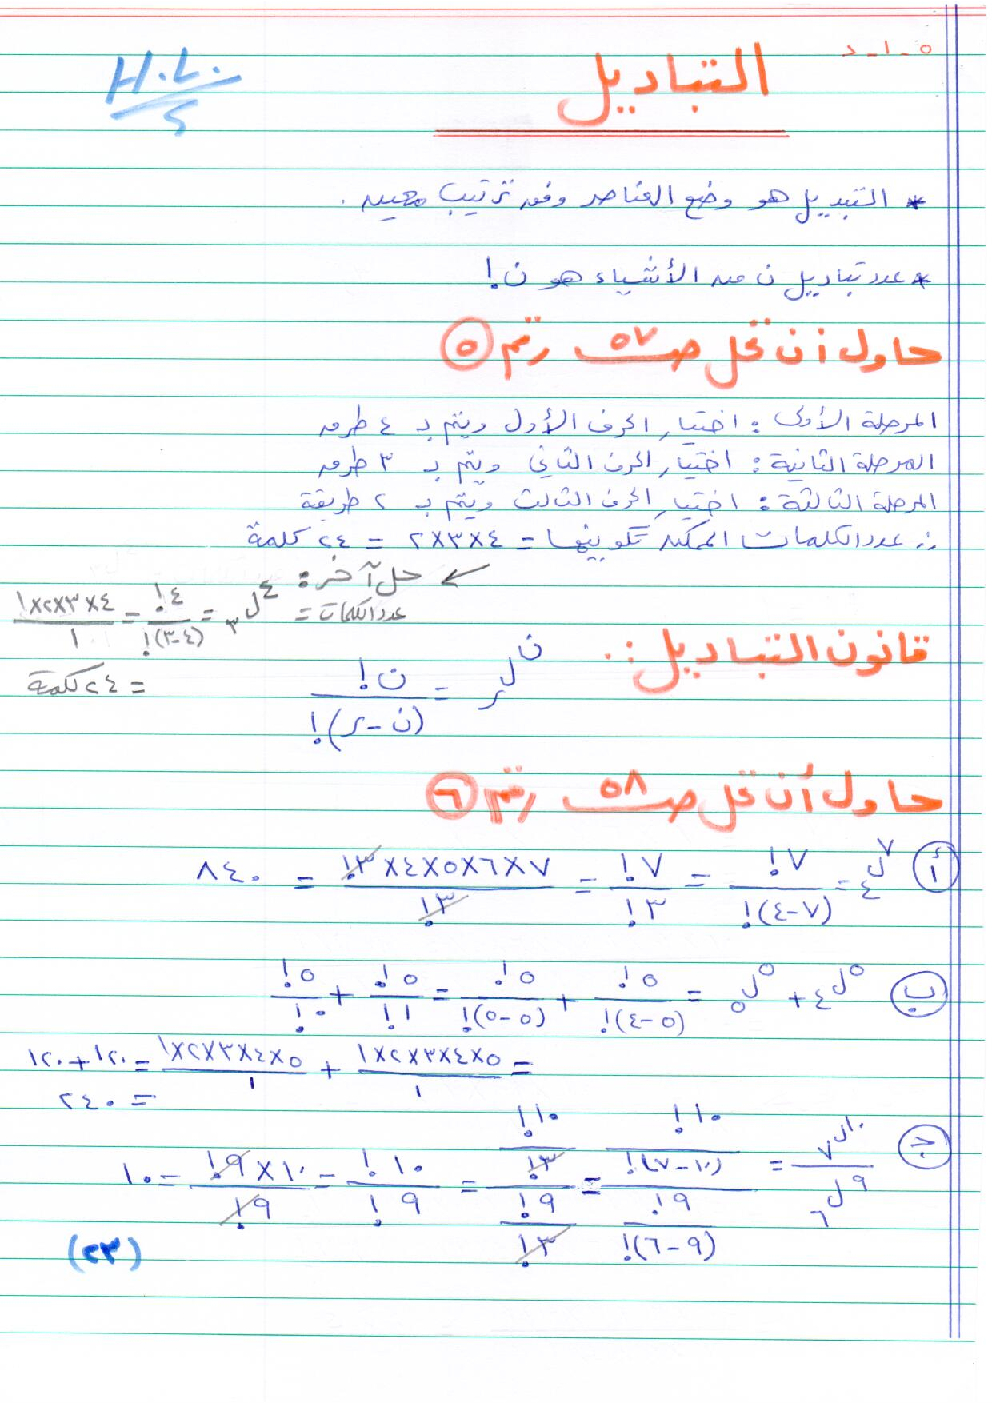 ٥-١-د
التباديل
H.L.
5
* التبديل هو وضع العناصر وفق ترتيب معين .
* عدد تباديل ن من الأشياء هو ن!
حاول أن تحل صـ ٥٧ رقم (٥)
المرحلة الأولى : اختيار الحرف الأول ويتم بـ ٤ طرق
المرحلة الثانية : اختيار الحرف الثاني ويتم بـ ٣ طرق
المرحلة الثالثة : اختيار الحرف الثالث ويتم بـ ٢ طريقة
∴ عدد الكلمات الممكن تكوينها = ٤×٣×٢ = ٢٤ كلمة
حل آخر :
عدد الكلمات = ٤ل٣ = ٤! / (٤-٣)! = ٤×٣×٢×١ / ١
= ٢٤ كلمة
قانون التباديل :
نلر = ن! / (ن-ر)!
حاول أن تحل صـ ٥٨ رقم (٦)
(أ) ٧ل٤ = ٧! / (٧-٤)! = ٧! / ٣! = ٧×٦×٥×٤×٣! / ٣! = ٨٤٠
(ب) ٥ل٤ + ٥ل٥ = ٥! / (٥-٤)! + ٥! / (٥-٥)! = ٥! / ١! + ٥! / ٠!
= ٥×٤×٣×٢×١ / ١ + ٥×٤×٣×٢×١ / ١ = ١٢٠+١٢٠
= ٢٤٠
(ج) ١٠ل٧ / ٩ل٦ = ١٠! / (١٠-٧)! / ٩! / (٩-٦)! = ١٠! / ٣! / ٩! / ٣! = ١٠! / ٩! = ١٠×٩! / ٩! = ١٠
(٢٣)